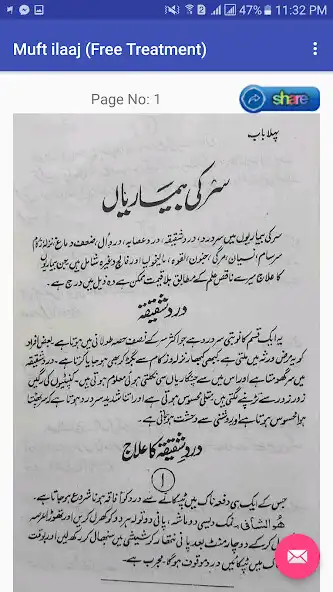 47% 11:32 PM
Muft ilaaj (Free Treatment)
Page No: 1
share
پہلا باب
سر کی بیماریاں
سر کی بیماریوں میں سر درد، درد شقیقہ، درد عصابہ، دوران، ضعف دماغ، نزلہ زکام
سرسام، نسیان، مرگی، جنون، القوہ، مالیخولیا اور فالج وغیرہ شامل ہیں جن بیماریوں
کا علاج میرے ناقص علم کے مطابق بلا قیمت ممکن ہے وہ ذیل میں درج ہے۔
درد شقیقہ
یہ ایک قسم کا نوبتی سر درد ہے جو اکثر سر کے نصف حصہ طولانی میں ہوتا ہے بعض افراد
کو یہ مرض ورثہ میں ملتی ہے کبھی کبھار نزلہ و زکام سے بگڑ کر بھی ہو جایا کرتا ہے۔ درد شقیقہ
میں سر گھومتا ہے اور اس میں سے چنگاریاں سی نکلتی ہوئی معلوم ہوتی ہیں۔ کنپٹیوں کی رگیں
زور زور سے تڑپنے لگتی ہیں متلی محسوس ہوتی ہے اور اتنا شدید سر درد ہوتا ہے کہ سر پھٹتا
ہوا محسوس ہوتا ہے اور روشنی سے وحشت ہوتی ہے۔
درد شقیقہ کا علاج
۱
جس کے ایک ہی دفعہ ناک میں ٹپکانے سے درد کو آفاقہ ہونا شروع ہو جاتا ہے۔
ھو الشافی: نمک دیسی دو ماشہ، پانی دو تولہ ہر دو کو کھرل کریں اور تھوڑا عرصہ
کر کے دو چار منٹ بعد پانی نتھار کر شیشی میں سنبھال کر رکھ لیں اور بوقت
ناک میں ٹپکائیں درد موقوف ہو گا۔ مجرب ہے۔